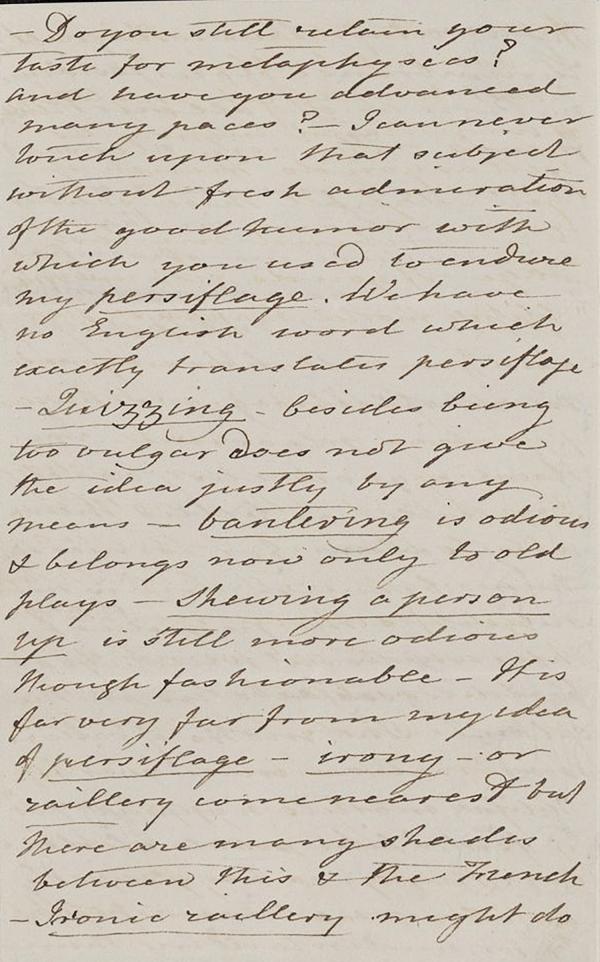 - Do you still retain your
taste for metaphysics?
and have you advanced
many paces? - I can never
touch upon that subject
without fresh admiration
of the good humor with
which you used to endure
my persiflage. We have
no English word which
exactly translates persiflage
- Quizzing - besides being
too vulgar does not give
the idea justly by any
means - bantering is odious
& belongs now only to old
plays - shewing a person
up is still more odious
though fashionable - It is
far very far from my idea
of persiflage - irony - or
raillery come nearest but
there are many shades
between this & the French
- Ironic raillery might do